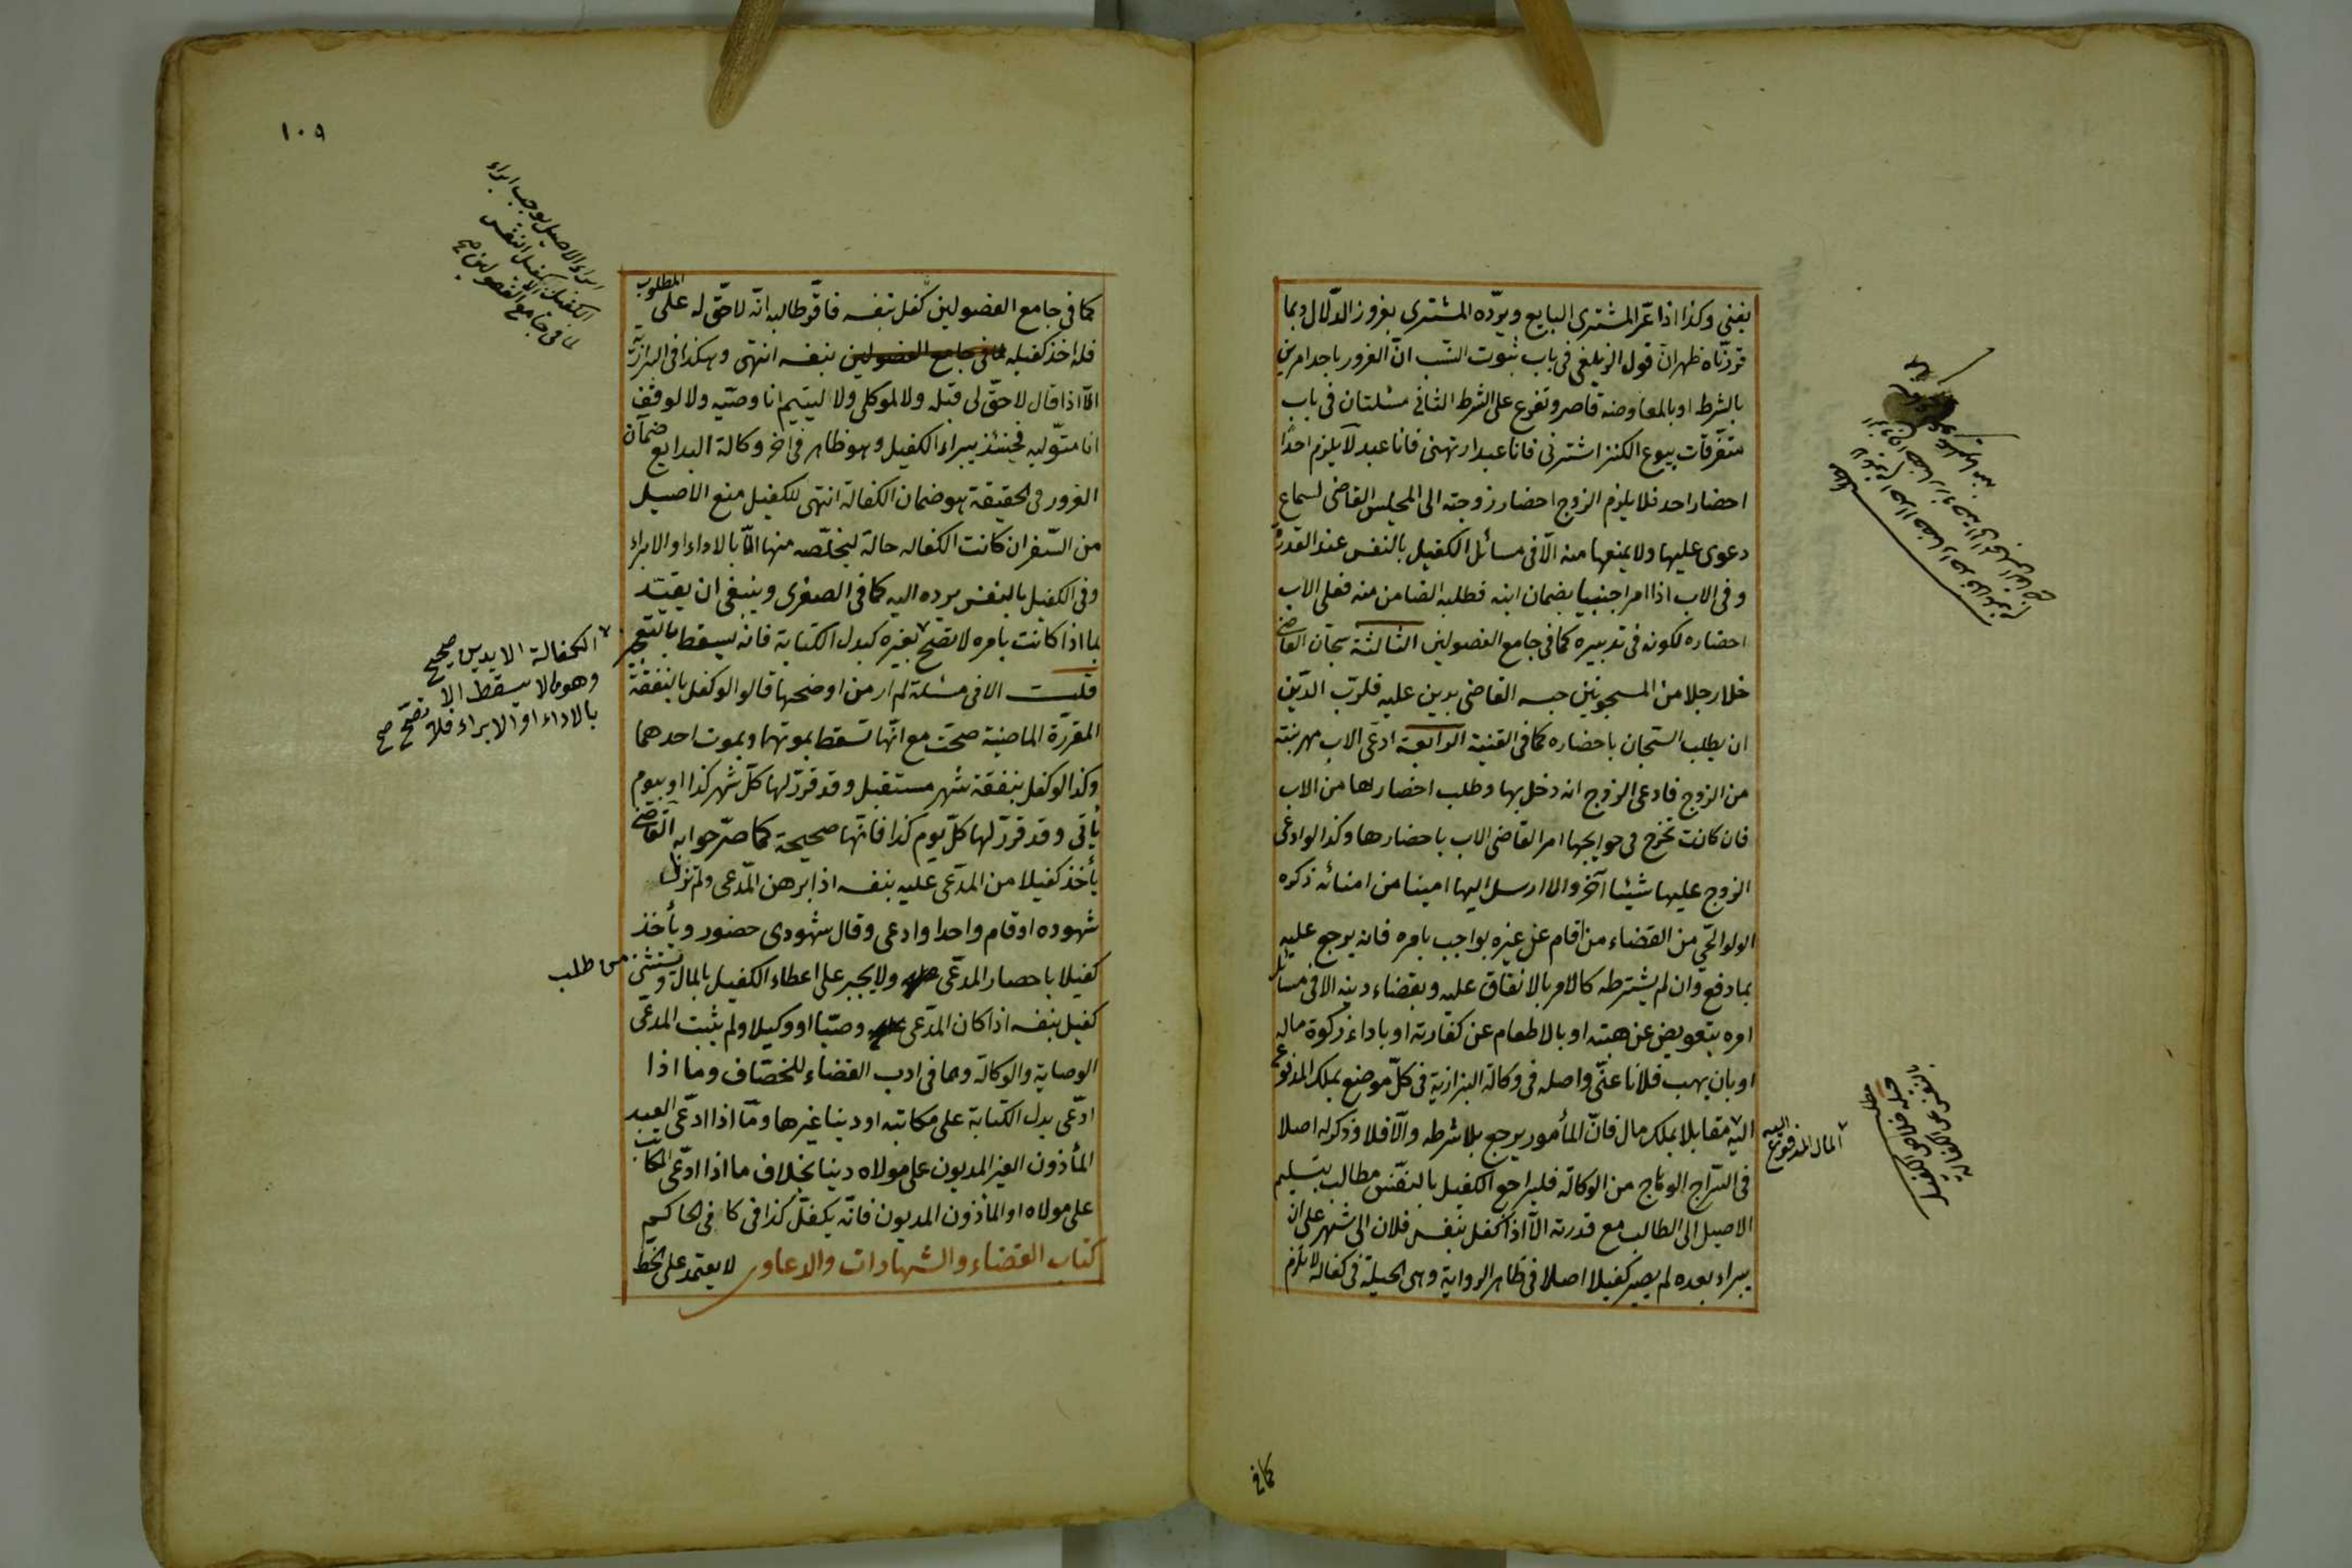 يفتى وكذا اذا غر المشترى البايع ويرده المشترى بغرور الدلال وبما
قررناه ظهر ان قول الزيلعى فى باب ثبوت النسب ان الغرور باحد امرين
بالشرط او بالمعاوضة قاصر وتفرع على الشرط الثانى مسئلتان فى باب
متفرقات بيوع الكنز اشترنى فانا عبد ارتهنى فانا عبد لا يلزم احدا
احضار احد فلا يلزم الزوج احضار زوجته الى المجلس القاضى لسماع
دعوى عليها ولا يمنعها منه الا فى مسائل الكفيل بالنفس عند القدرة
وفى الاب اذا امر اجنبيا بضمان ابنه فطلبه الضامن منه فعلى الاب
احضاره لكونه فى تدبيره كما فى جامع الفصولين الثالثة سجان القاضى
خلا رجلا من المسجونين حبسه القاضى بدين عليه فلرب الدين
ان يطلب السجان باحضاره كما فى القنية الرابعة ادعى الاب مهر بنته
من الزوج فادعى الزوج انه دخل بها وطلب احضارها من الاب
فان كانت تخرج فى حوايجها امر القاضى الاب باحضارها وكذا لو ادعى
الزوج عليها شيئا آخر والا ارسل اليها امينا من امنائه ذكره
الولوالجى من القضاء من اقام عن غيره بواجب بامره فانه يرجع عليه
بما دفع وان لم يشترطه كالامر بالانفاق عليه وبقضاء دينه الا فى مسائل
امره بتعويض عن هبته او بالاطعام عن كفارته او باداء زكوة ماله
او بان يهب فلانا عنى واصله فى وكالة البزازية فى كل موضع يملك المدفوع
اليه مقابلا بملك مال فان المأمور يرجع بلا شرط والا فلا وذكر له اصلا
المال المدفوع اليه
فى السراج الوهاج من الوكالة فليراجع الكفيل بالنفس مطالب بتسليم
الاصيل الى الطالب مع قدرته الا اذا كفل بنفس فلان الى شهر على ان
يبراء بعده لم يصير كفيلا اصلا فى ظاهر الرواية وهى الحيلة فى كفالة لا تلزم
كما فى
١٠٩
كما فى جامع الفصولين كفل بنفسه فاقر طالبه انه لا حق له على المطلوب
فله اخذ كفيله لما فى جامع الفصولين بنفسه انتهى وهكذا فى البزازية
الا اذا قال لا حق لى قبله ولا لموكلى ولا ليتيم انا وصيه ولا لوقف
انا متوليه فحينئذ يبراء الكفيل وهو ظاهر فى اخر وكالة البدايع ضمان
الغرور فى الحقيقة هو ضمان الكفالة انتهى للكفيل منع الاصيل
من السفر ان كانت الكفاله حالة ليخلصه منها اما بالاداء او الابراء
وفى الكفيل بالنفس يرده اليه كما فى الصغرى وينبغى ان يقيد
بما اذا كانت بامره لا تصح بغيره كبدل الكتابة فانه يسقط بالتعجيز
الكفالة الا بدين صحيح
وهو مالا يسقط الا
بالاداء او الابراء فلا تصح صح
قلت الا فى مسئلة لم ار من اوضحها قالوا لو كفل بالنفقة
المقررة الماضية صحت مع انها تسقط بموتهما وبموت احدهما
وكذا لو كفل بنفقة شهر مستقبل وقد قرر لها كل شهر كذا او بيوم
يأتى وقد قرر لها كل يوم كذا فانها صحيحة كما صرحوا به القاضى
يأخذ كفيلا من المدعى عليه بنفسه اذا برهن المدعى ولم تزك
شهوده او قام واحدا وادعى وقال شهودى حضور ويأخذ
كفيلا باحضار المدعى ولا يجبر على اعطاء الكفيل بالمال ويستثنى من طلب
كفيل بنفسه اذا كان المدعى وصيا او وكيلا ولم يثبت المدعى
الوصاية والوكالة وهما فى ادب القضاء للخصاف وما اذا
ادعى بدل الكتابة على مكاتبه او دينا غيرها وما اذا ادعى العبد
المأذون الغير المديون على مولاه دينا بخلاف ما اذا ادعى المكاتب
على مولاه او المأذون المديون فانه يكفل كذا فى كافى الحاكم
كتاب القضاء والشهادات والدعاوى لا يعتمد على الخط
ابراء الاصيل يوجب ابراء
الكفيل الا كفيل النفس
كما فى جامع الفصولين صح